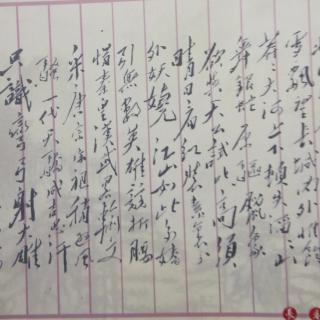 雪飄望長城内外惟餘
莽大河上下頓失滔々山
舞銀蛇原驅蠟象
欲與天公試比高須
晴日看紅裝素裹
外妖嬈江山如此多嬌
引無數英雄競折腰
惜秦皇漢武略輸文
采唐宗宋祖稍遜風
騷一代天驕成吉思汗
只識彎弓射大雕